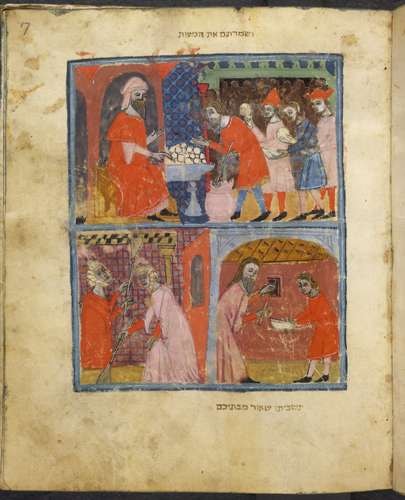 7
ושמרתם את המצות
תשביתו שאור מבתיכם